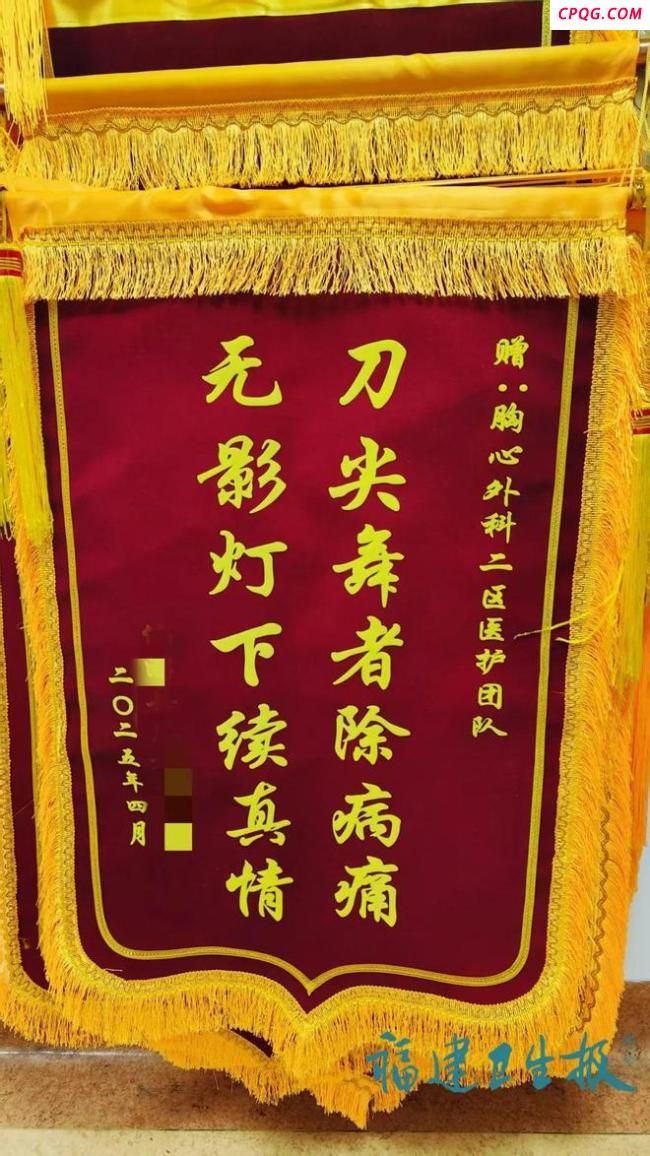 CPQG.COM
赠：胸心外科二区医护团队
刀尖舞者除病痛
无影灯下续真情
二〇二五年四月
福建卫生报